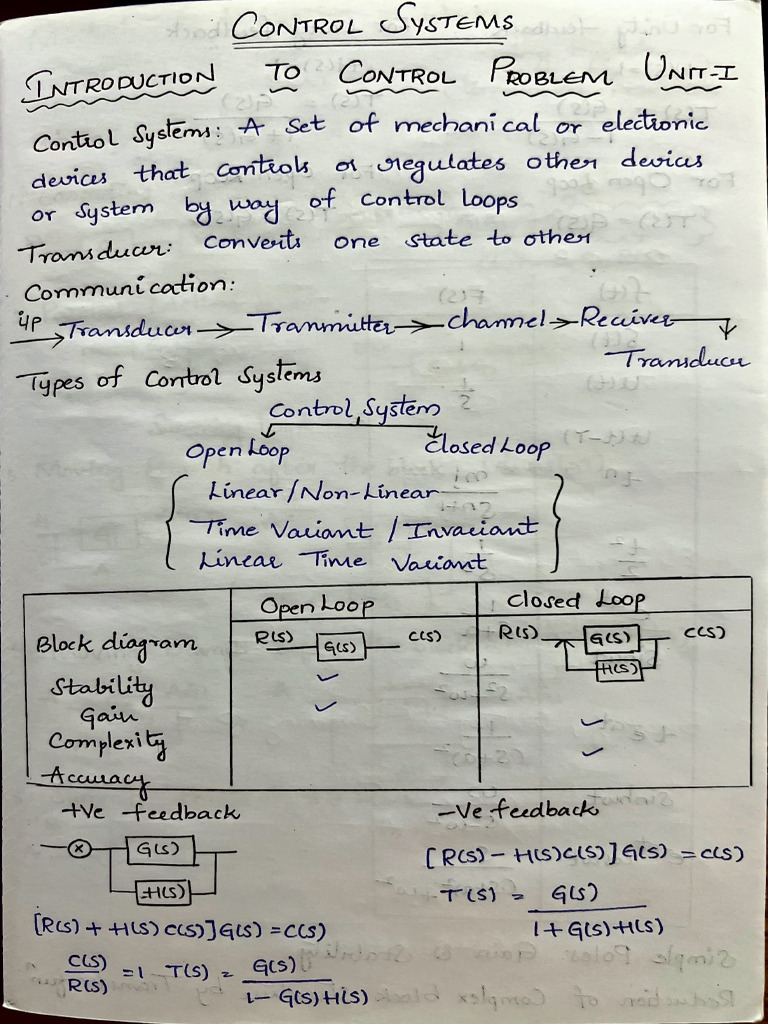 CONTROL SYSTEMS
INTRODUCTION TO CONTROL PROBLEM UNIT-I
Control Systems: A set of mechanical or electronic
devices that controls or regulates other devices
or system by way of control loops
Transducer: converts one state to other
Communication:
i/p Transducer → Tranmitter → channel → Reciver
Transducer
Types of Control Systems
Control System
Open Loop Closed Loop
Linear/Non-Linear
Time Variant / Invariant
Linear Time Variant
Open Loop Closed Loop
Block diagram R(S) G(S) C(S) R(S) G(S) C(S)
H(S)
Stability ✓
Gain ✓
Complexity ✓
Accuracy ✓
+Ve feedback -Ve feedback
G(S)
H(S)
[R(S) - H(S)C(S)]G(S) = C(S)
T(S) = G(S) / 1+G(S)H(S)
[R(S) + H(S) C(S)]G(S) = C(S)
C(S)/R(S) = 1 T(S) = G(S) / 1- G(S)H(S)